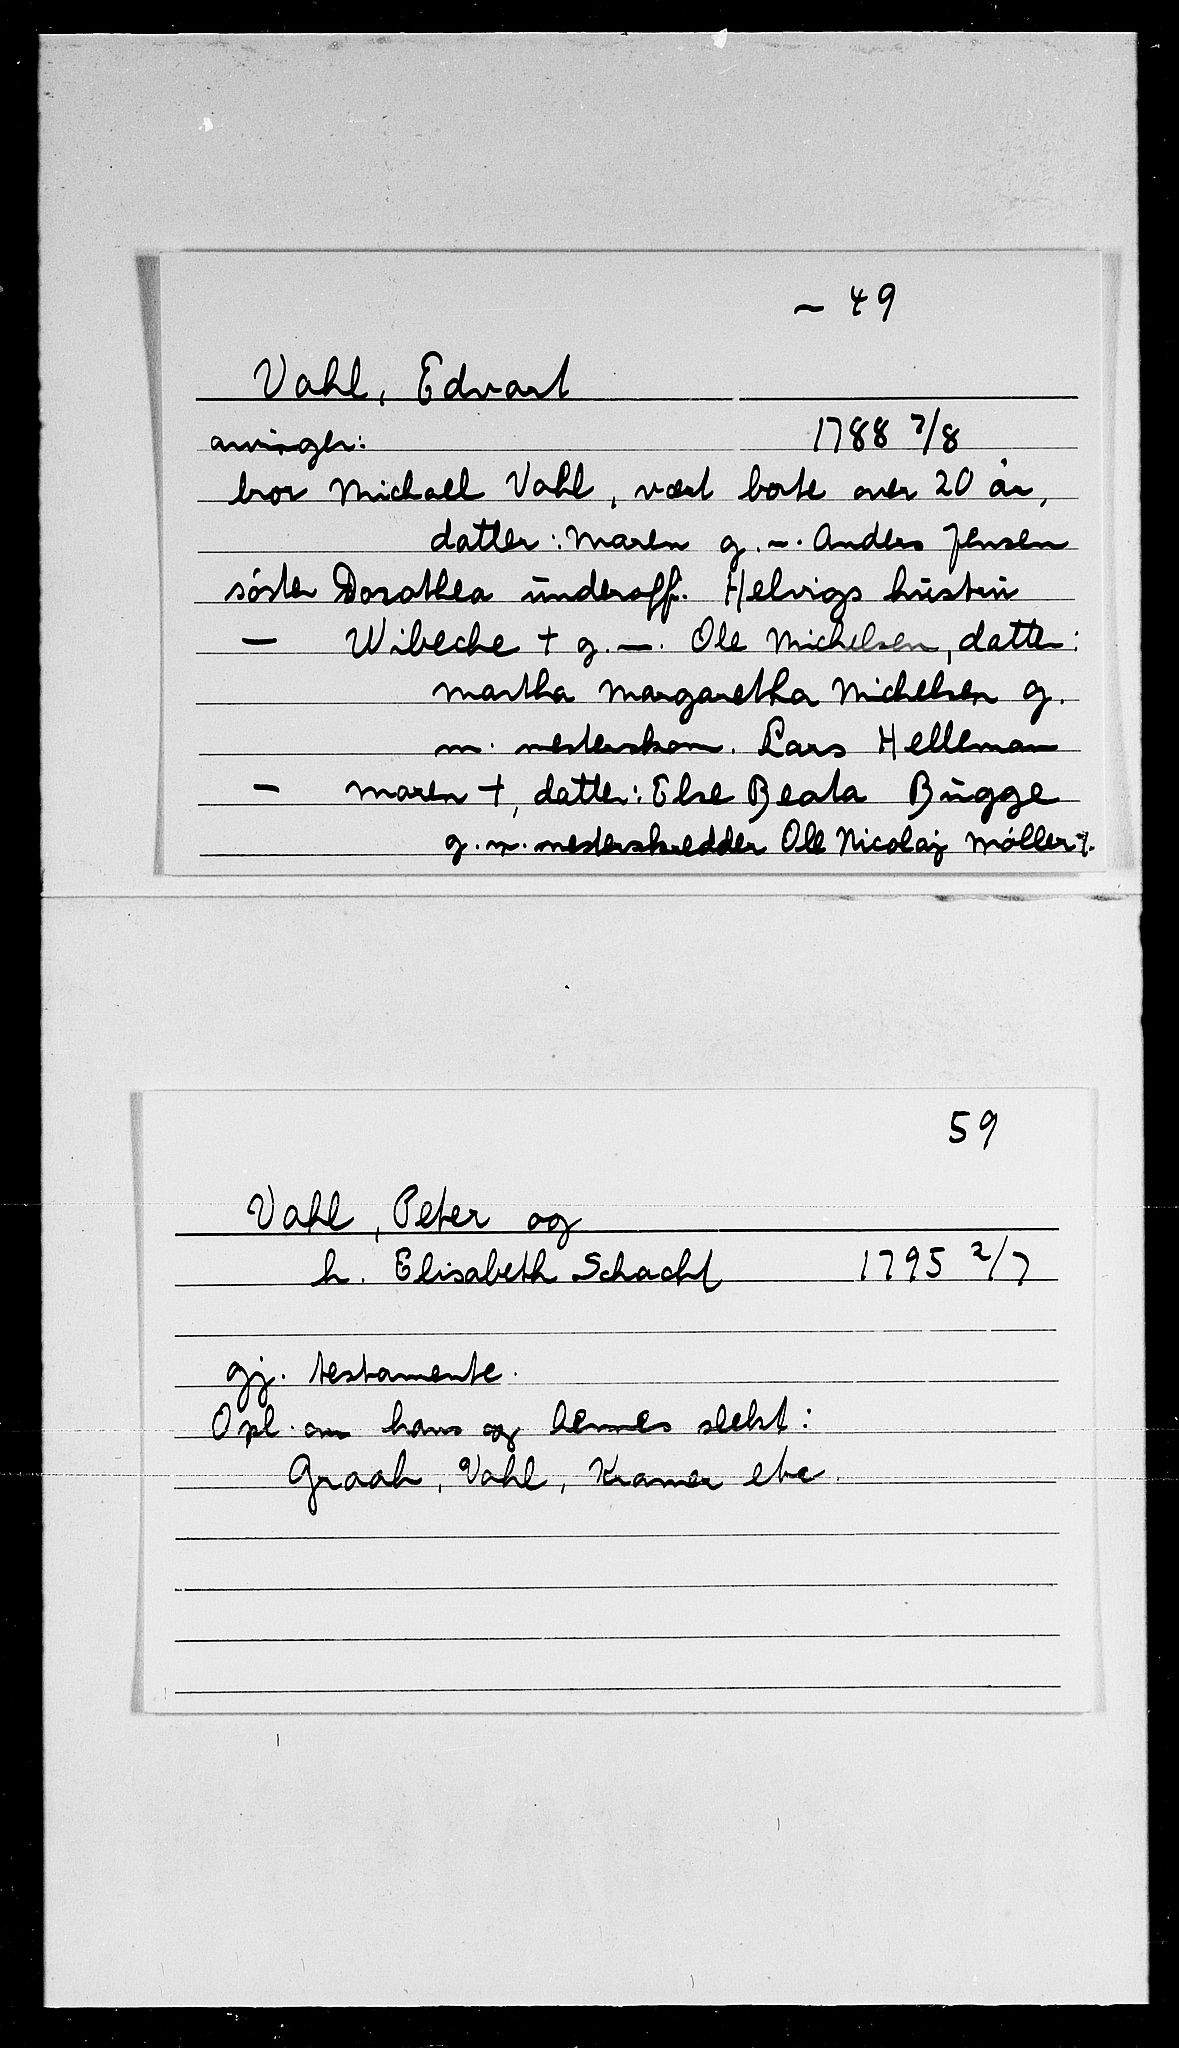 – 49
Vahl, Edvart
arvinger: 1788 7/8
bror Michael Vahl, vært borte over 20 år,
datter: Maren g. m. Anders Jensen
söster Dorothea underoff. Helvigs hustru
— Wibeche + g. m. Ole Michelsen, datter:
Martha Margaretha Michelsen g.
m. mesterskom. Lars Helleman
– Maren +, datter: Else Beata Bugge
g. m. mesterskredder Ole Nicolaj Möller
59
Vahl, Peter og
h. Elisabeth Schacht 1795 2/7
gj. testamente.
Opl. om hans og hennes slekt:
Graah, Vahl, Kramer etc.